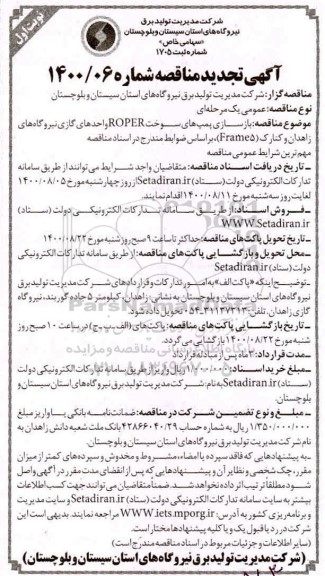 نوبت اول
شرکت مدیریت تولید برق
نیروگاه‌های استان سیستان و بلوچستان
«سهامی خاص»
شماره ثبت ۱۷۰۵
آگهی تجدید مناقصه شماره ۱۴۰۰/۰۶
مناقصه گزار: شرکت مدیریت تولید برق نیروگاه‌های استان سیستان و بلوچستان
نوع مناقصه: عمومی یک مرحله‌ای
موضوع مناقصه: بازسازی پمپ‌های سوخت ROPER واحدهای گازی نیروگاه‌های
زاهدان و کنارک (Frame5)، بر اساس ضوابط مندرج در اسناد مناقصه
مهم‌ترین شرایط عمومی مناقصه
ـ تاریخ دریافت اسناد مناقصه: متقاضیان واجد شرایط می‌توانند از طریق سامانه
تدارکات الکترونیکی دولت (ستاد) Setadiran.ir از روز چهارشنبه مورخ ۱۴۰۰/۰۸/۰۵
لغایت روز سه‌شنبه مورخ ۱۴۰۰/۰۸/۱۱ اقدام نمایند.
ـ فروش اسناد: از طریق سامانه تدارکات الکترونیکی دولت (ستاد)
WWW.Setadiran.ir
ـ تاریخ تحویل پاکت‌های مناقصه: حداکثر تا ساعت ۹ صبح روز شنبه مورخ ۱۴۰۰/۰۸/۲۲
ـ محل تحویل و بازگشایی پاکت‌های مناقصه: از طریق سامانه تدارکات الکترونیکی
دولت (ستاد) Setadiran.ir
ـ توضیح اینکه «پاکت الف» به امور تدارکات و قراردادهای شرکت مدیریت تولید برق
نیروگاه‌های استان سیستان و بلوچستان به نشانی: زاهدان، کیلومتر ۵ جاده گوربند، نیروگاه
گازی زاهدان، تلفن: ۳۱۱۳۷۳۱۳-۰۵۴ تحویل داده شود.
ـ تاریخ بازگشایی پاکت‌های مناقصه: پاکت‌های (الف ـ ب ـ ج) در ساعت ۱۰ صبح روز
شنبه مورخ ۱۴۰۰/۰۸/۲۲ بازگشایی می‌گردد.
مدت قرارداد: ۳ ماه پس از مبادله قرارداد
ـ مبلغ خرید اسناد: ۱/۰۰۰/۰۰۰ ریال واریز از طریق سامانه تدارکات الکترونیکی دولت
(ستاد) Setadiran.ir به نام: شرکت مدیریت تولید برق نیروگاه‌های استان سیستان و
بلوچستان.
ـ مبلغ و نوع تضمین شرکت در مناقصه: ضمانت‌نامه بانکی یا واریز مبلغ
۱/۳۵۰/۰۰۰/۰۰۰ ریال به شماره حساب ۴۲۸۶۶۰۴۰/۲۹ بانک ملت شعبه دانش زاهدان به
نام شرکت مدیریت تولید برق نیروگاه‌های استان سیستان و بلوچستان.
ـ به پیشنهادهایی که فاقد سپرده یا امضاء، مشروط و مخدوش و سپرده‌های کمتر از میزان
مقرر، چک شخصی و نظایر آن و پیشنهادهایی که پس از انقضای مدت مقرر در آگهی واصل
شود مطلقاً ترتیب اثر داده نخواهد شد. ضمناً متقاضیان می‌توانند جهت کسب اطلاعات
بیشتر به سایت سامانه تدارکات الکترونیکی دولت (ستاد) Setadiran.ir و سایت مدیریت
و برنامه‌ریزی کشور به آدرس: WWW.iets.mporg.ir مراجعه نمایند. بدیهی است این
شرکت در رد یا قبول یک و یا کلیه پیشنهادها مختار است.
(سایر اطلاعات و جزئیات مربوط در اسناد مناقصه مندرج است)
(شرکت مدیریت تولید برق نیروگاه‌های استان سیستان و بلوچستان)